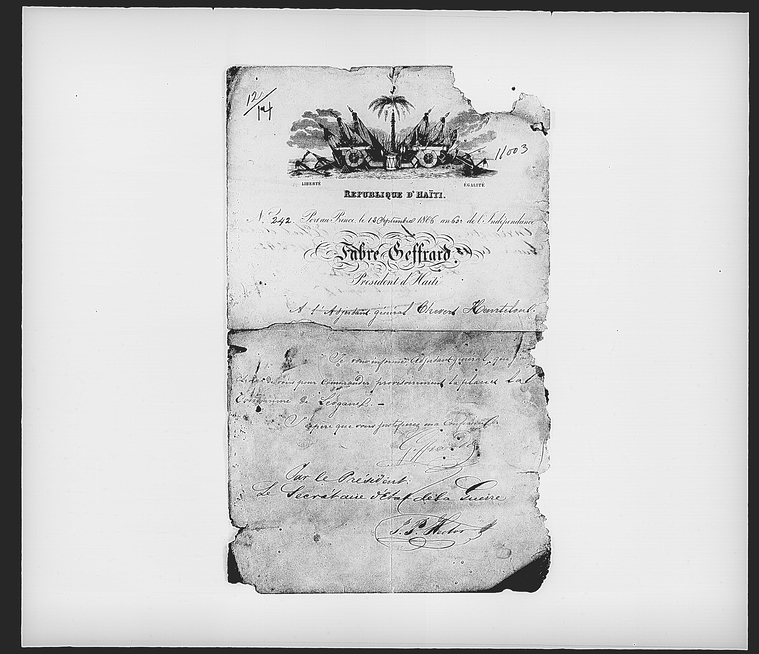 12/14
11003
LIBERTÉ
EGALITÉ
REPUBLIQUE D'HAÏTI.
N.º 242. Port au Prince, le 13 Septembre 1866 an 63e de l'Indépendance
Fabre Geffrard.
Président d'Haïti
A l'Adjudant général Chevert
Je vous informe, Adjudant général, que
de vous pour commander provisoirement la place et la
Commune de Léogane. —
J'espère que vous justifierez ma confiance.
Geffrard
Par le Président.
Le Secrétaire d'Etat de la Guerre